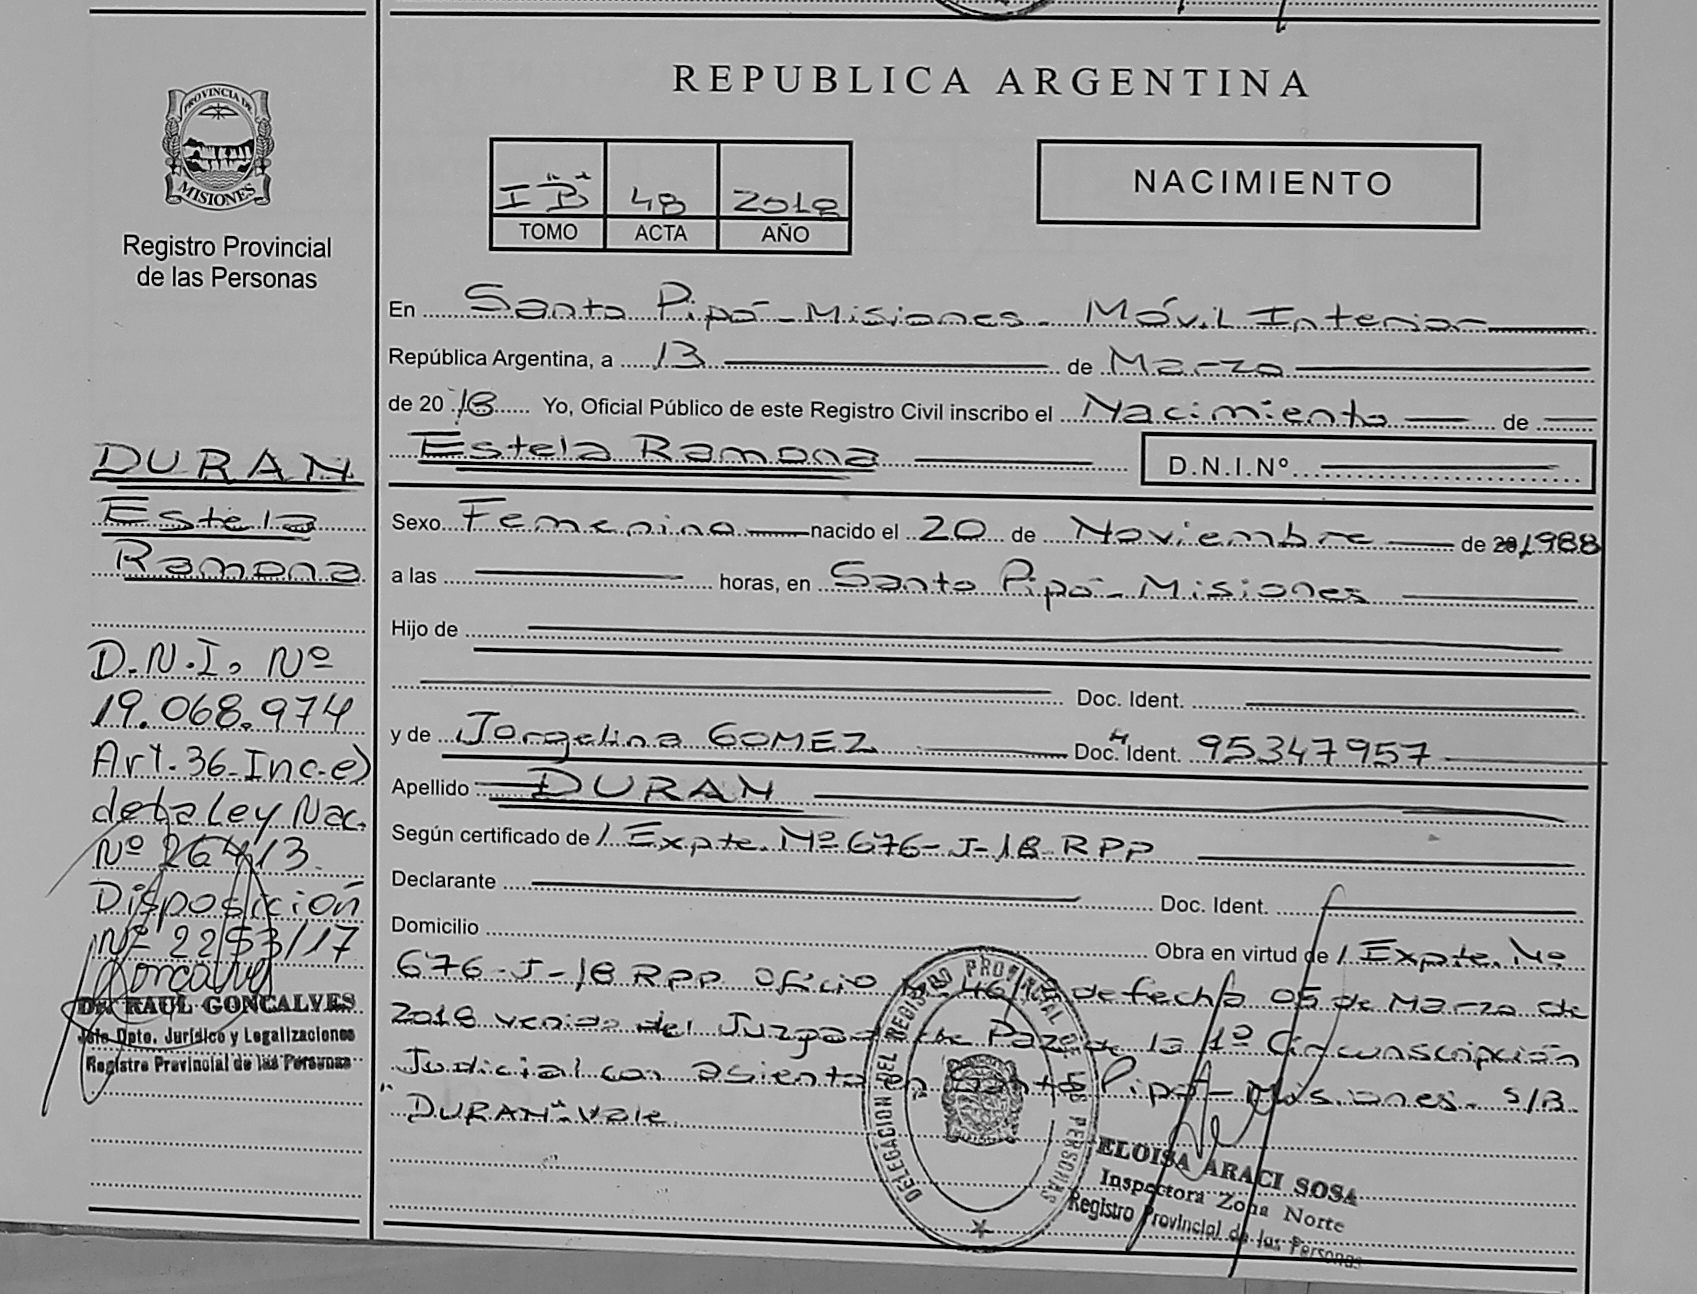 REPUBLICA ARGENTINA
PROVINCIA DE
MISIONES
Registro Provincial
de las Personas
I "B" 48 2018
TOMO ACTA AÑO
NACIMIENTO
En Santo Pipó - Misiones - Móvil Interior
República Argentina, a 13 de Marzo
de 2018 Yo, Oficial Público de este Registro Civil inscribo el Nacimiento de
Estela Ramona D.N.I.Nº
Sexo Femenino nacido el 20 de Noviembre de 20/1988
a las horas, en Santo Pipó - Misiones
Hijo de
Doc. Ident.
y de Jorgelina GOMEZ Doc. Ident. 95347957
Apellido DURAN
Según certificado de / Expte. Nº 676-J-18 RPP
Declarante Doc. Ident.
Domicilio Obra en virtud de / Expte. Nº
676-J-18 RPP Oficio Nº 46/ de fecha 05 de Marzo de
2018 venido del Juzgado de Paz de la 1º Circunscripción
Judicial con asiento en Santo Pipó - Misiones. S/B.
"DURAN" Vale.
DURAN
Estela
Ramona
D.N.I. Nº
19.068.974
Art. 36 - Inc. e)
de La Ley Nac.
Nº 26413.
Disposición
Nº 2253/17
Goncalves
Dr. RAUL GONCALVES
Jefe Dpto. Jurídico y Legalizaciones
Registro Provincial de las Personas
DELEGACION DEL REGISTRO PROVINCIAL DE LAS PERSONAS
ELOISA ARACI SOSA
Inspectora Zona Norte
Registro Provincial de las Personas